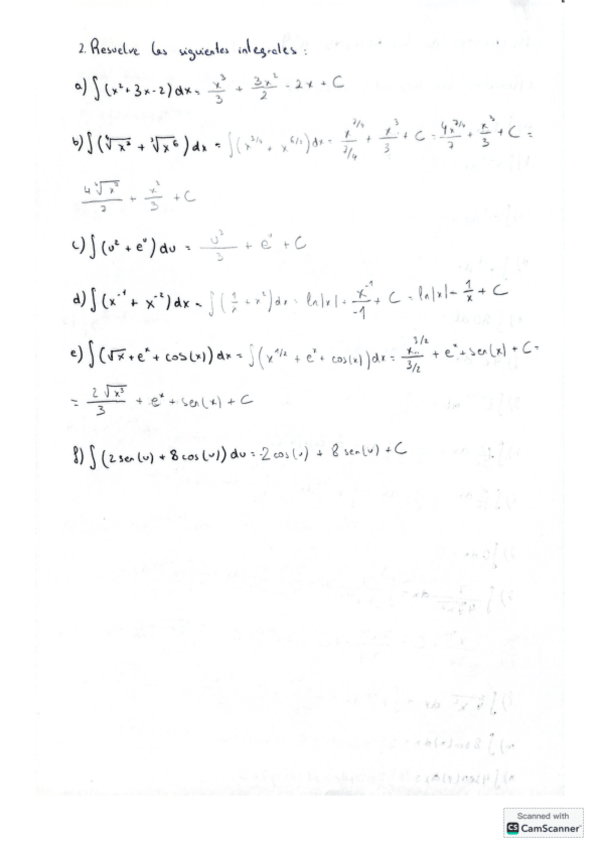 2. Resuelve las siguientes integrales:
a) ∫(x²+3x-2)dx = x³/3 + 3x²/2 - 2x + C
b) ∫(⁴√x³ + ³√x⁶)dx = ∫(x^(3/4) + x^(6/3))dx = x^(7/4)/(7/4) + x³/3 + C = 4x^(7/4)/7 + x³/3 + C =
+ x³/3 + C
c) ∫(u² + eᵘ)du = u³/3 + eᵘ + C
d) ∫(x⁻¹ + x⁻²)dx = ∫(1/x + x⁻²)dx = ln|x| + x⁻¹/-1 + C = ln|x| - 1/x + C
e) ∫(√x + eˣ + cos(x))dx = ∫(x^(1/2) + eˣ + cos(x))dx = x^(3/2)/(3/2) + eˣ + sen(x) + C =
= 2√x³/3 + eˣ + sen(x) + C
f) ∫(2sen(u) + 8cos(u))du = -2cos(u) + 8sen(u) + C
Scanned with
CS CamScanner